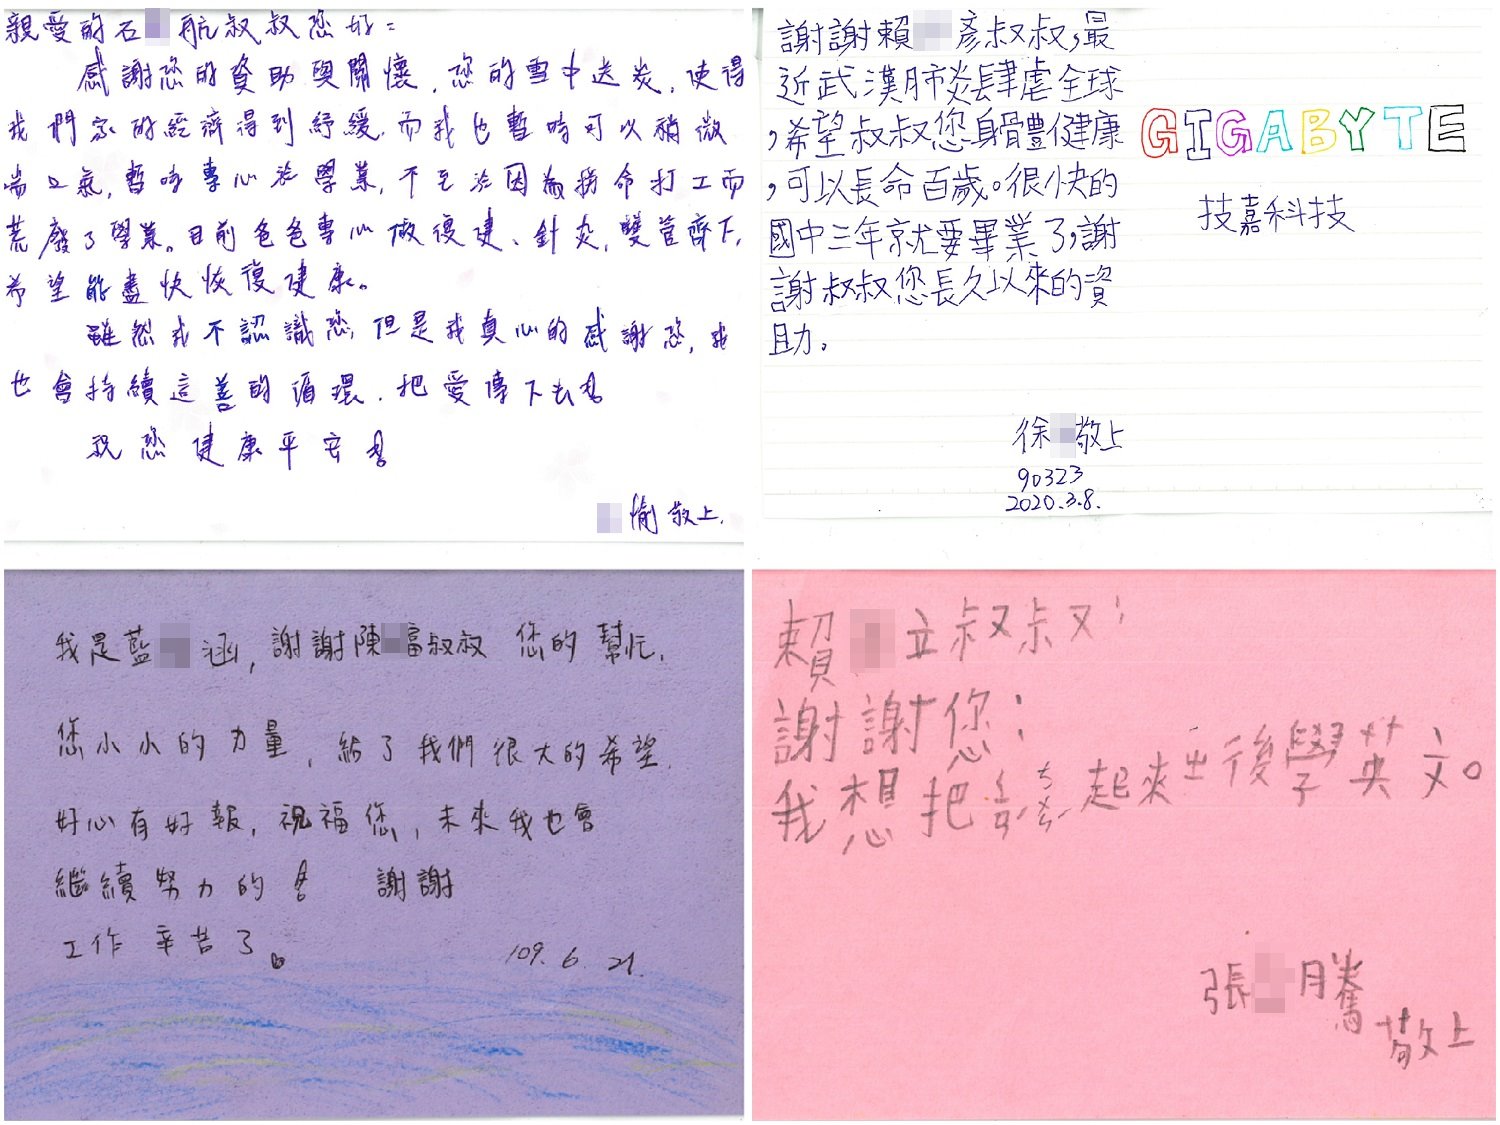 親愛的石 航叔叔您好:
感謝您的資助與關懷,您的雪中送炭,使得
我們家的經濟得到紓緩,而我也暫時可以稍微
喘口氣,暫時專心於學業,不至於因為拚命打工而
荒廢了學業。目前爸爸專心做復建、針灸,雙管齊下,
希望能盡快恢復健康。
雖然我不認識您,但是我真心的感謝您,我
也會持續這善的循環,把愛傳下去!
祝您健康平安!
愉敬上.
謝謝賴 彥叔叔,最
近武漢肺炎肆虐全球
,希望叔叔您身體健康
,可以長命百歲。很快的
國中三年就要畢業了,謝
謝叔叔您長久以來的資
助。
徐 敬上
90323
2020.3.8.
GIGABYTE
技嘉科技
我是藍 涵,謝謝陳 富叔叔 您的幫忙,
您小小的力量,給了我們很大的希望.
好心有好報,祝福您,未來我也會
繼續努力的! 謝謝
工作辛苦了。
109. 6. 21.
賴 立叔叔:
謝謝您:
我想把 ㄔㄨㄢ 起來出後學英文。
張 騰
敬上